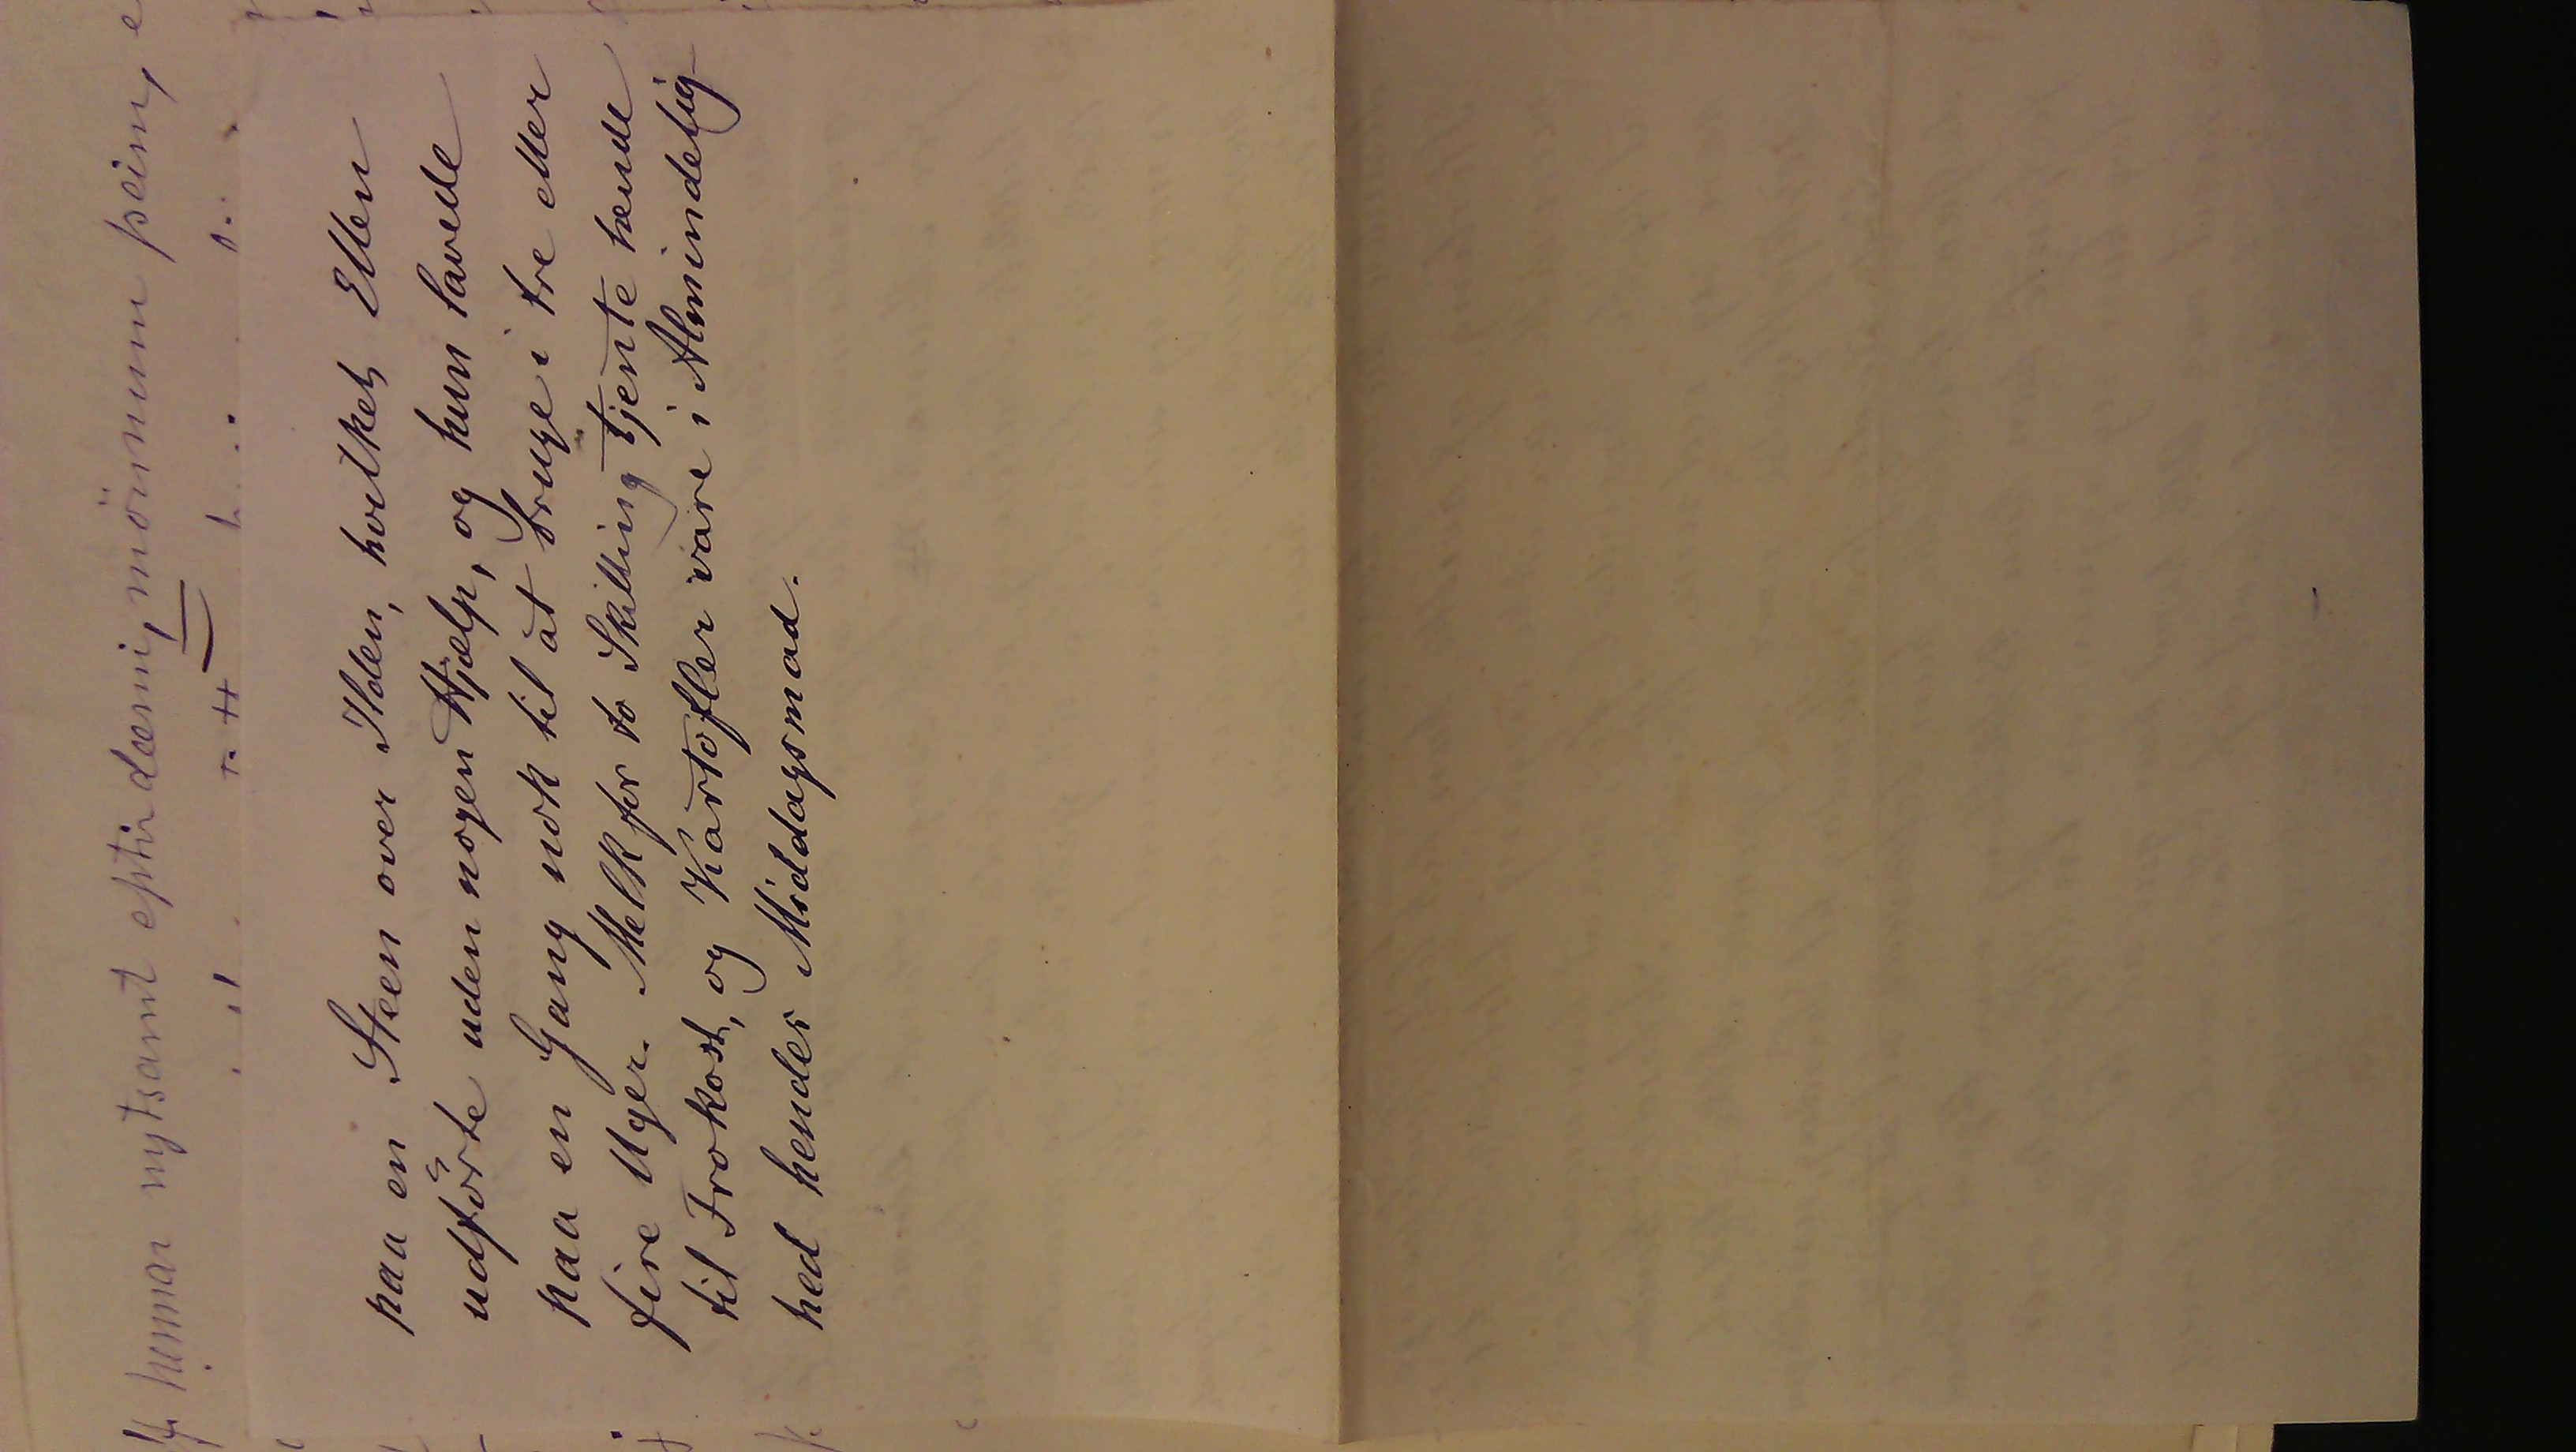 hennar nytsamt eptirdæmi, mönnum þeim, e
paa en Steen over Ilden, hvilket Ellen
udförte uden nogen Hjælp, og hun lavede
paa en Gang nok til at bruge i tre eller
fire Uger. Melk for to Skilling tjente hende
til Frokost, og Kartofler vare i Almindelig-
hed hendes Middagsmad.